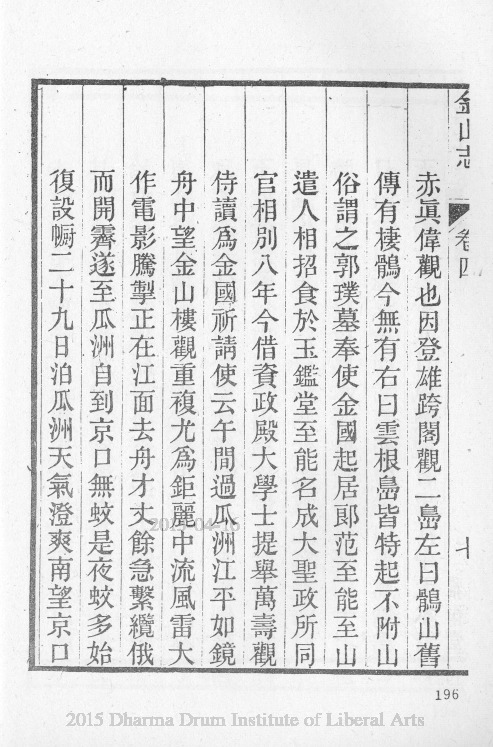 金山志 卷四 七
赤眞偉觀也因登雄跨閣觀二島左曰鶻山舊
傳有棲鶻今無有右曰雲根島皆特起不附山
俗謂之郭璞墓奉使金國起居郞范至能至山
遣人相招食於玉鑑堂至能名成大聖政所同
官相別八年今借資政殿大學士提舉萬壽觀
侍讀爲金國祈請使云午間過瓜洲江平如鏡
舟中望金山樓觀重複尤爲鉅麗中流風雷大
作電影騰掣正在江面去舟才丈餘急繫纜俄
而開霽遂至瓜洲自到京口無蚊是夜蚊多始
復設幮二十九日泊瓜洲天氣澄爽南望京口
196
2015 Dharma Drum Institute of Liberal Arts